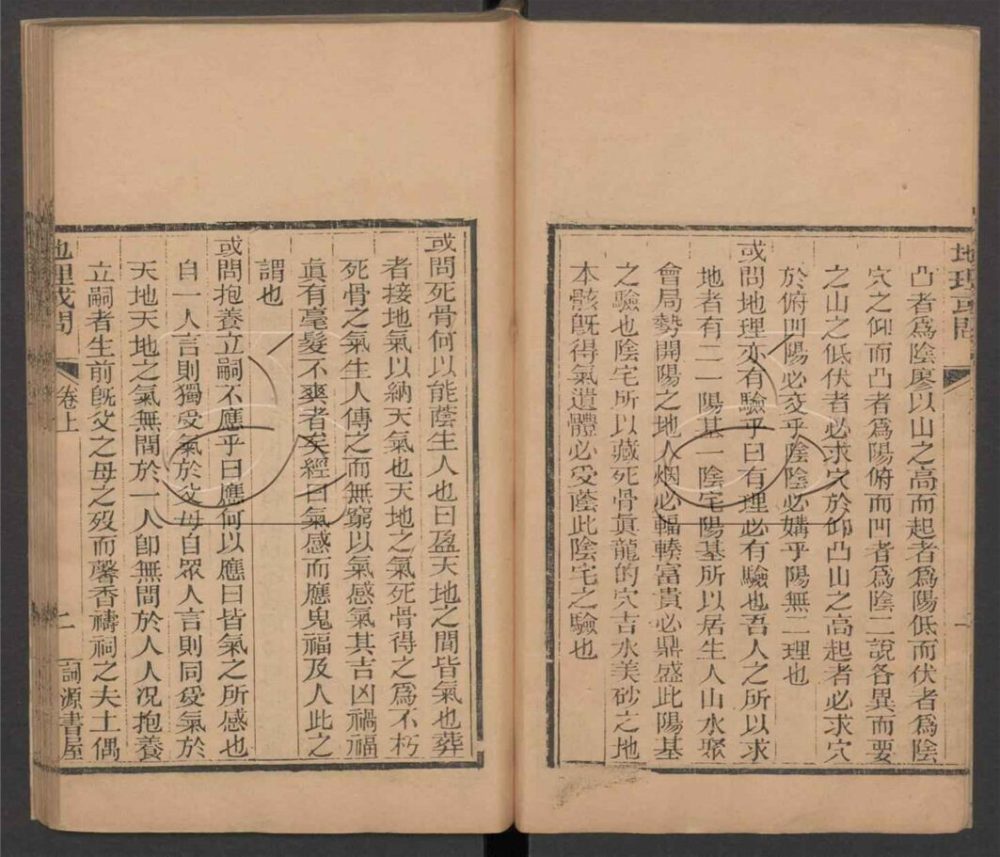 地理或問
凸者爲陰廖以山之高而起者爲陽低而伏者爲陰
穴之仰而凸者爲陽俯而凹者爲陰二說各異而要
之山之低伏者必求穴於仰凸山之高起者必求穴
於俯凹陽必交乎陰陰必媾乎陽無二理也
或問地理亦有驗乎曰有理必有驗也吾人之所以求
地者有二一陽基一陰宅陽基所以居生人山水聚
會局勢開陽之地人烟必輻輳富貴必鼎盛此陽基
之驗也陰宅所以藏死骨眞龍的穴吉水美砂之地
本骸旣得氣遺體必受蔭此陰宅之驗也
或問死骨何以能蔭生人也曰盈天地之間皆氣也葬
者接地氣以納天氣也天地之氣死骨得之爲不朽
死骨之氣生人傳之而無窮以氣感氣其吉凶禍福
眞有毫髮不爽者矣經曰氣感而應鬼福及人此之
謂也
或問抱養立嗣不應乎曰應何以應曰皆氣之所感也
自一人言則獨受氣於父母自眾人言則同受氣於
天地天地之氣無間於一人卽無間於人人况抱養
立嗣者生前旣父之母之歿而馨香禱祠之夫土偶
地理或問 卷上 二 詞源書屋